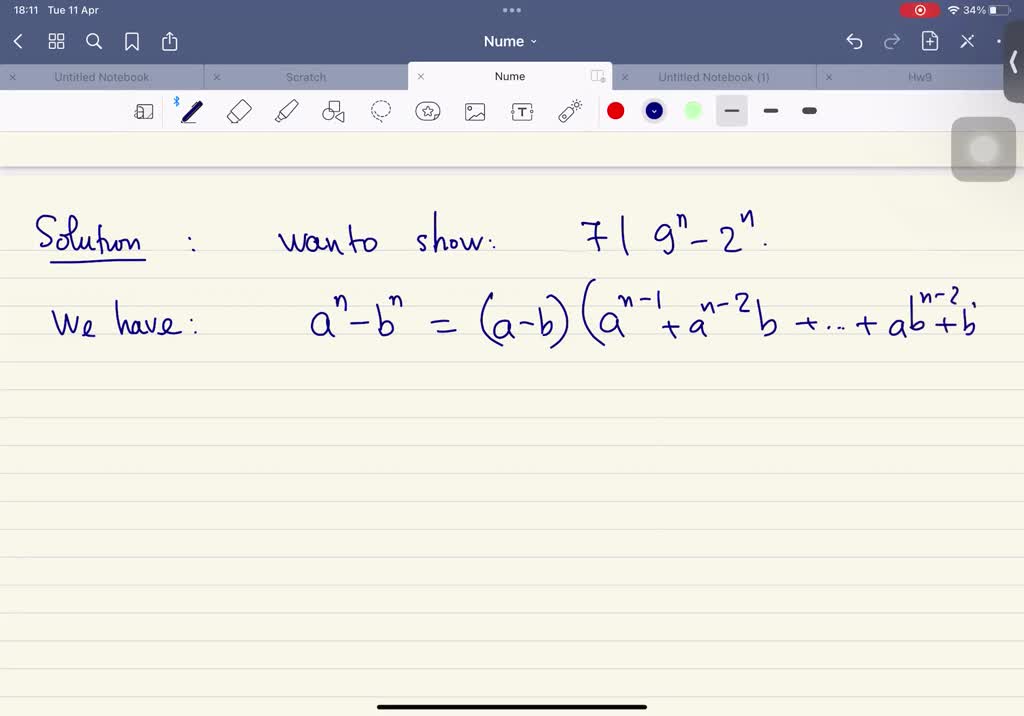 18:11 Tue 11 Apr 34%
Nume
Untitled Notebook Scratch Nume Untitled Notebook (1) Hw9
Solution : wan to show: 7 | 9^n - 2^n.
We have: a^n - b^n = (a-b)(a^{n-1} + a^{n-2}b + ... + ab^{n-2} + b